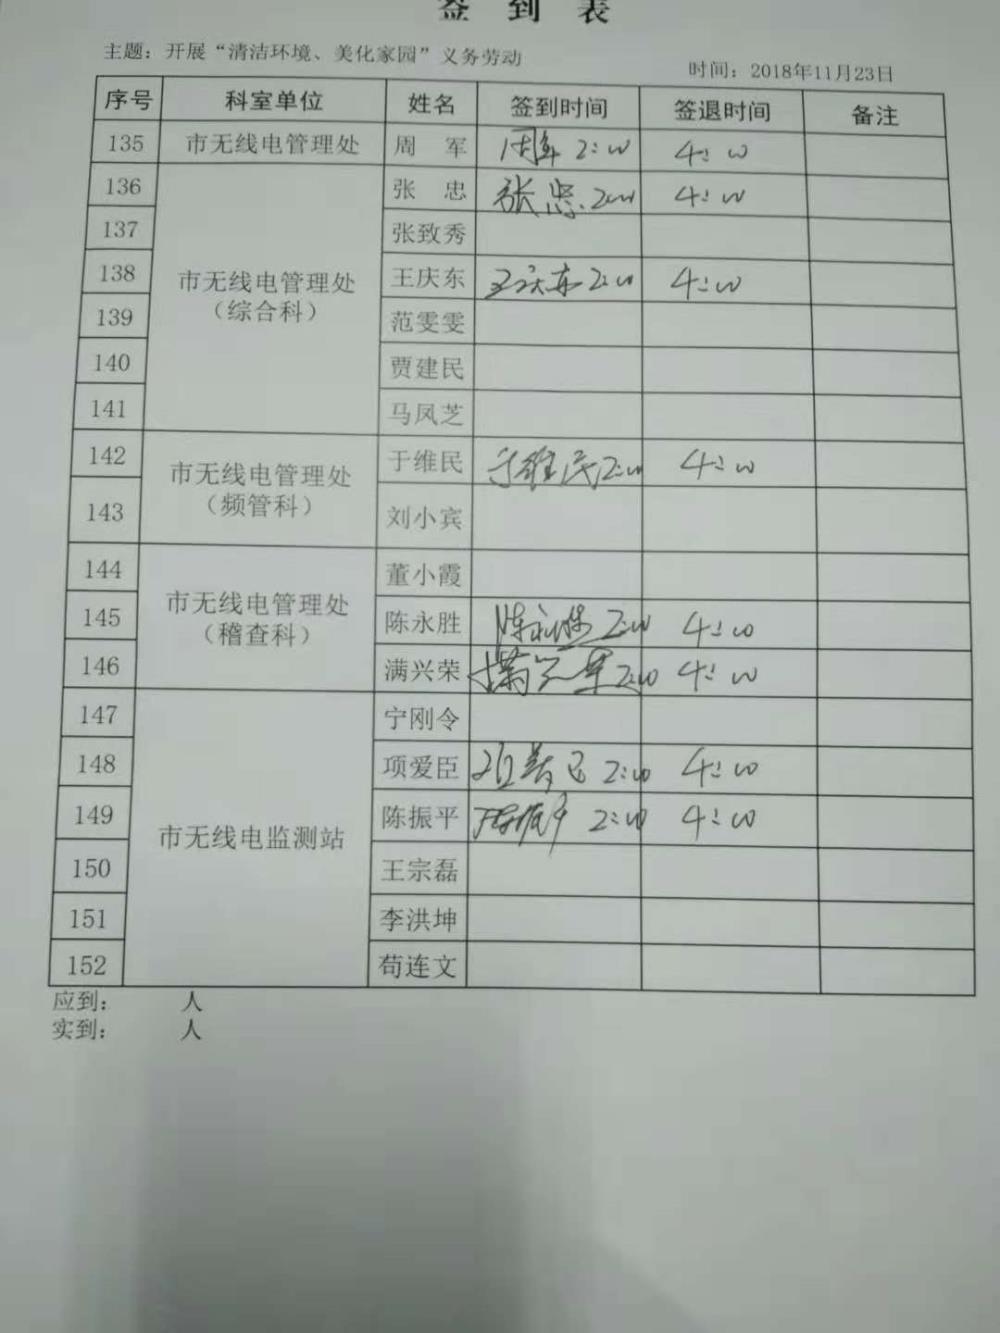 签到表
主题：开展“清洁环境、美化家园”义务劳动
时间：2018年11月23日
序号 科室单位 姓名 签到时间 签退时间 备注
135 市无线电管理处 周军 周军 2:00 4:00
136 张忠 张忠 2:00 4:00
137 张致秀
市无线电管理处
138 王庆东 王庆东 2:00 4:00
（综合科）
139 范雯雯
140 贾建民
141 马凤芝
142 于维民 于维民 2:00 4:00
市无线电管理处
（频管科）
143 刘小宾
144 董小霞
市无线电管理处
145 陈永胜 陈永胜 2:00 4:00
（稽查科）
146 满兴荣 满兴荣 2:00 4:00
147 宁刚令
148 项爱臣 项爱臣 2:00 4:00
149 陈振平 陈振平 2:00 4:00
市无线电监测站
150 王宗磊
151 李洪坤
152 苟连文
应到： 人
实到： 人